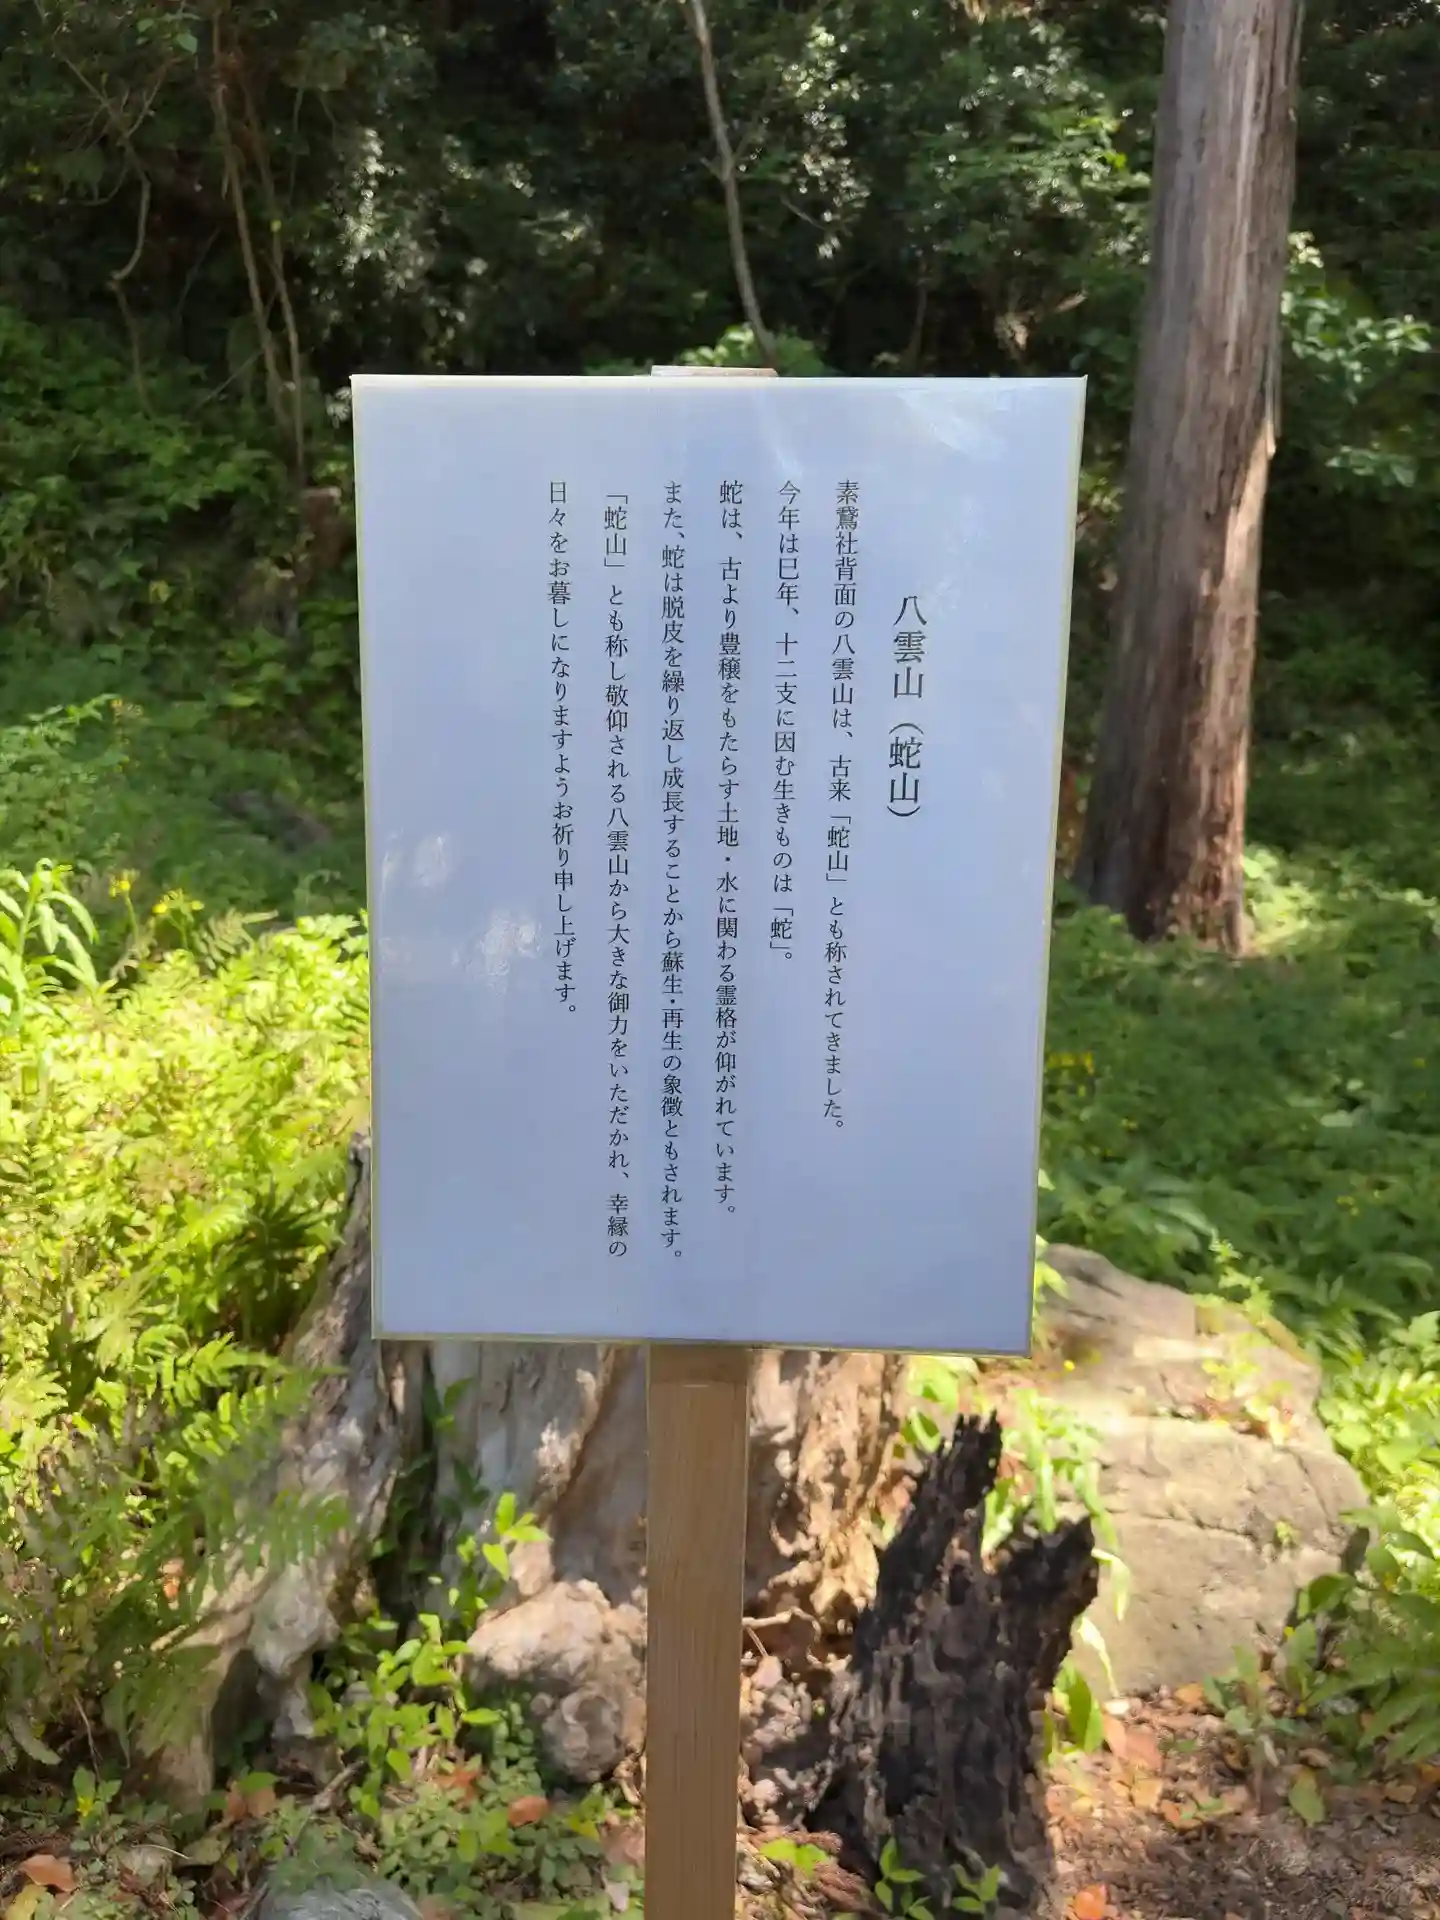 八雲山（蛇山）
素鵞社背面の八雲山は、古来「蛇山」とも称されてきました。
今年は巳年、十二支に因む生きものは「蛇」。
蛇は、古より豊穣をもたらす土地・水に関わる霊格が仰がれています。
また、蛇は脱皮を繰り返し成長することから蘇生・再生の象徴ともされます。
「蛇山」とも称し敬仰される八雲山から大きな御力をいただかれ、幸縁の
日々をお暮しになりますようお祈り申し上げます。